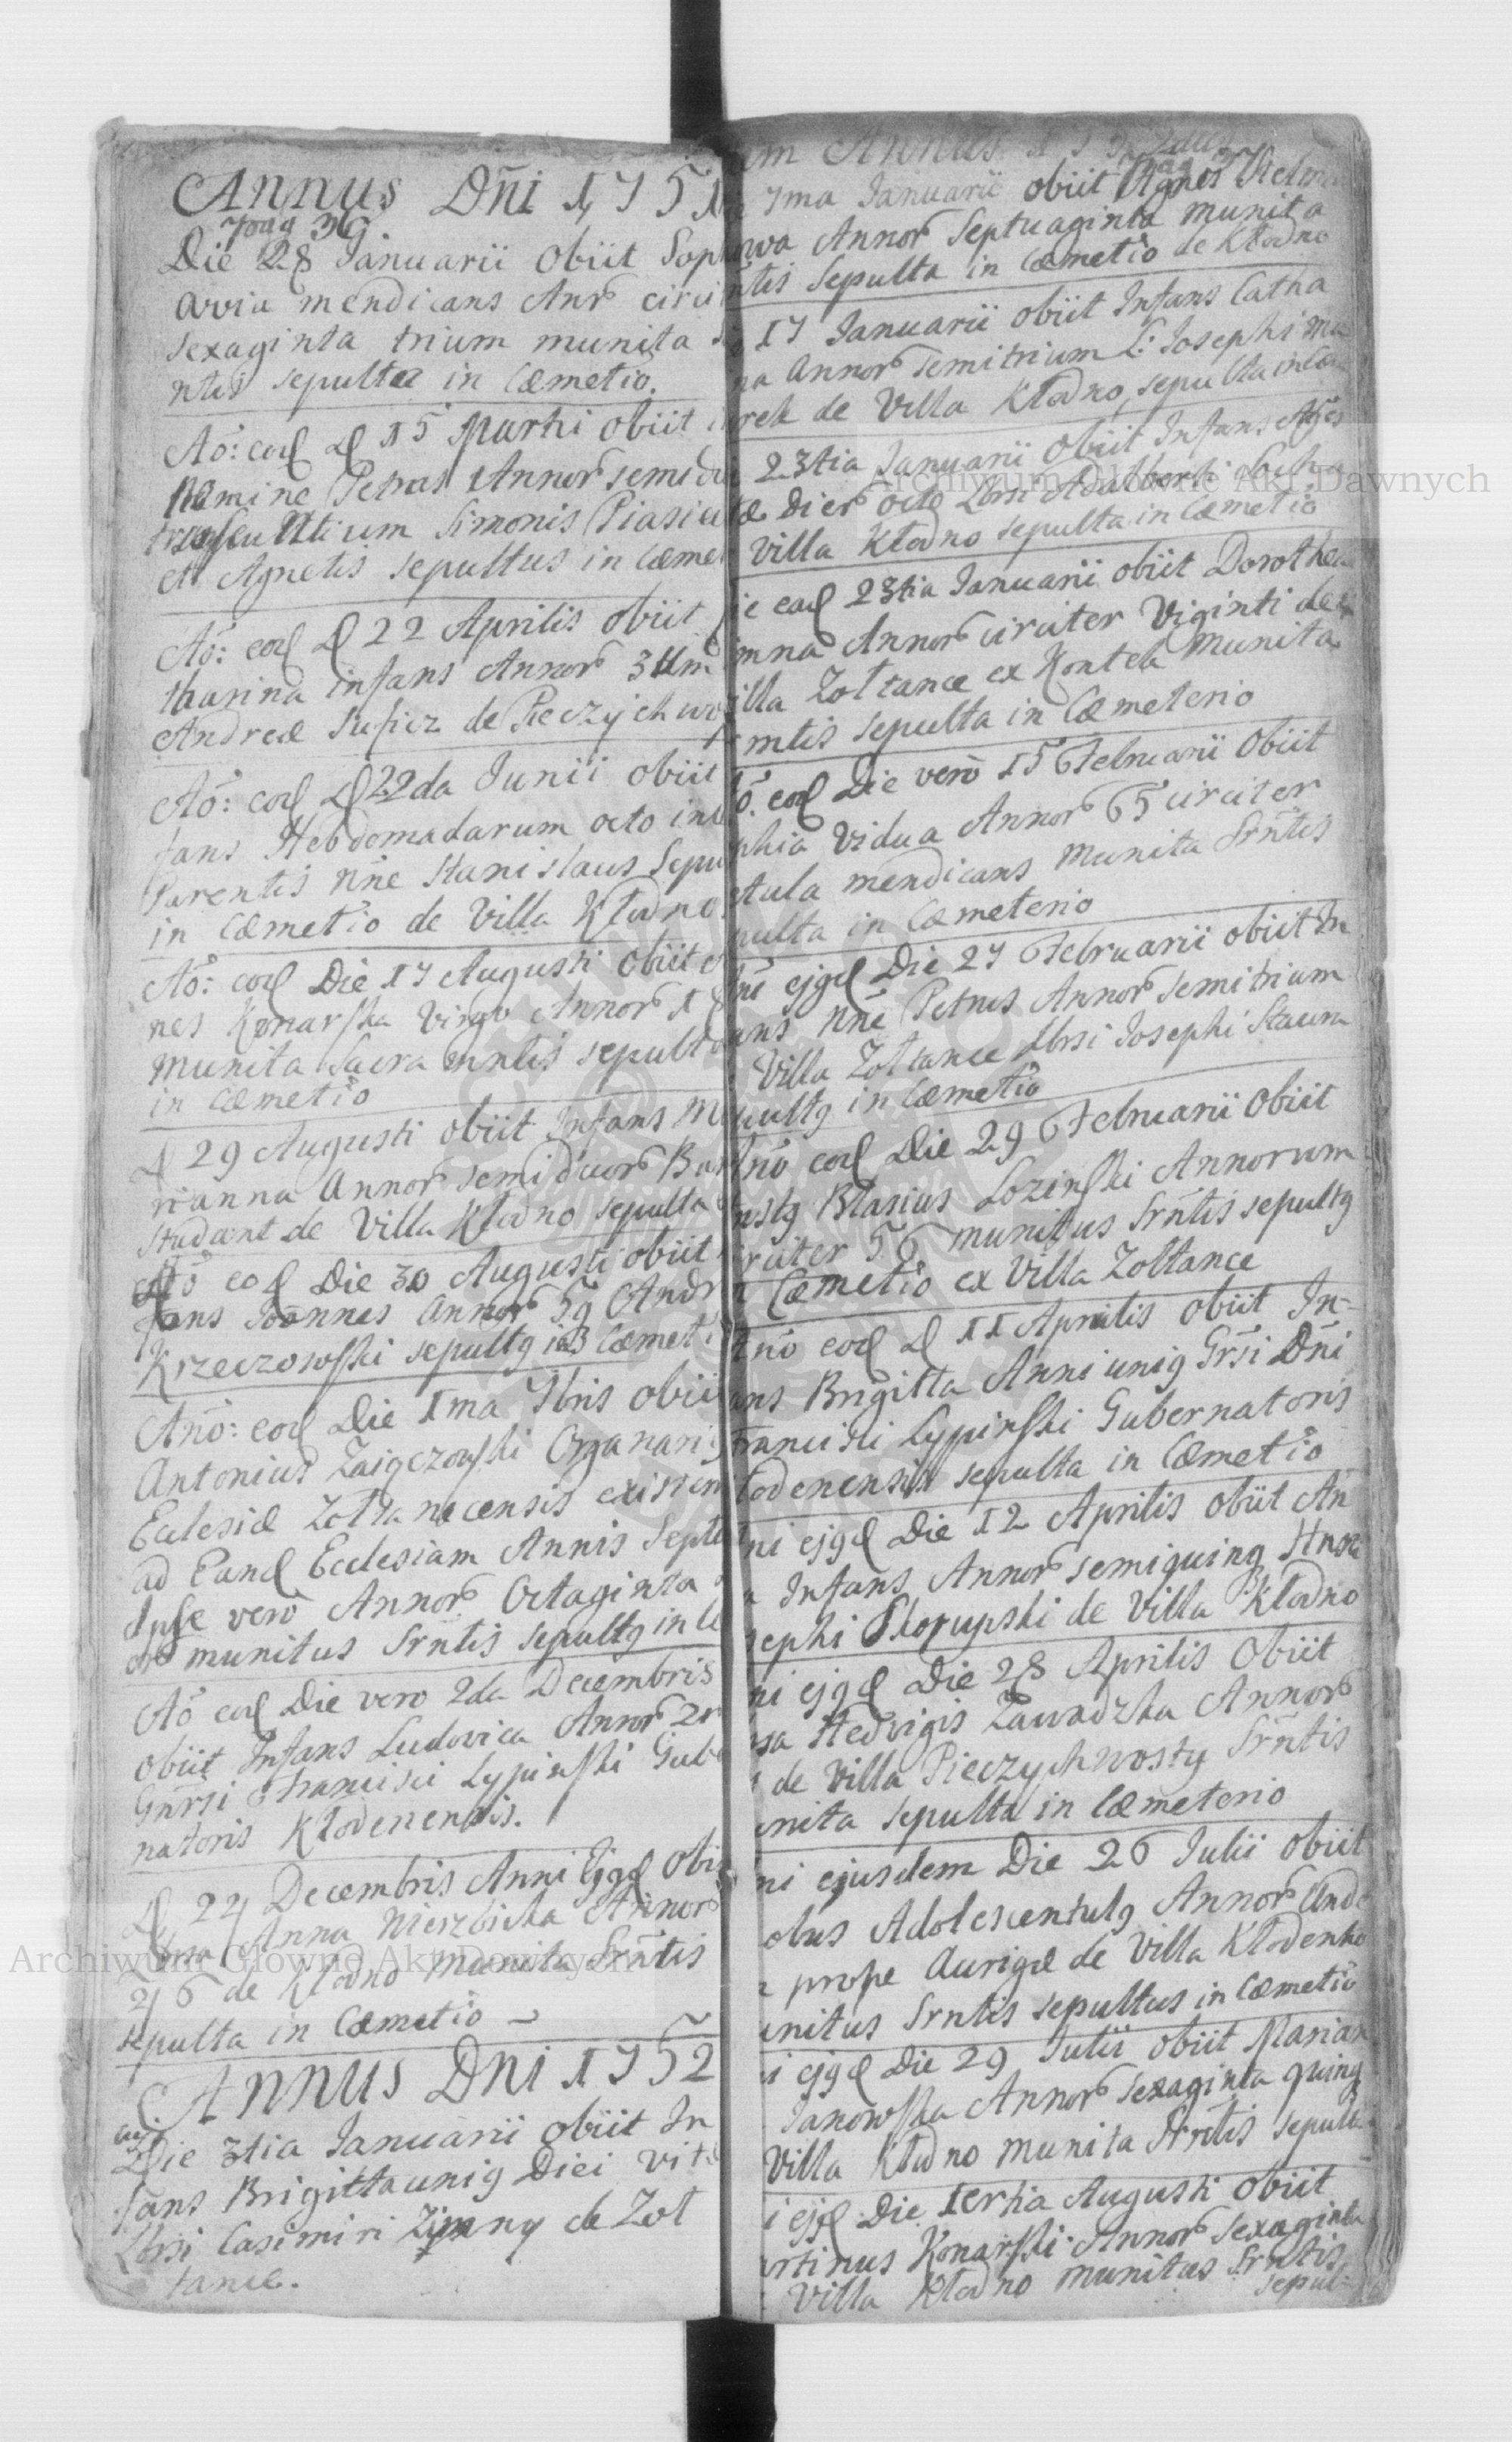 Annus Dñi 1751
pag 36
Die 28 Januarii Obiit Soph
avia mendicans Anr circi
sexaginta trium munita
ntis sepulta in Cæmetio.
Aõ: eod D 15 Martii obiit
nomine Petrus Annor semidu
Simonis Piasie
et Agnetis sepultus in Cæme
Aõ: eod D 22 Aprilis obiit
tharina infans Annor 3um
Andreæ de Pieczychwo
Aõ: eod D 22da Junii obiit
fans Hebdomadarum octo in
Parentis nñe Stanislaus Sepu
in Cæmetio de Villa Kłodno
Aõ: eod Die 17 Augusti Obiit
nes Konarska Virgo Annor 18
munita Sacra mntis sepulta
in Cæmetio
D 29 Augusti obiit Infans M
rianna Annor semiduor Bar
de Villa Kłodno sepulta
Aõ eod Die 30 Augusti obiit
fans Joannes Annor Andr
Krzeczowski sepultg in Cæmeti
Anõ: eod Die 1ma 7bris obii
Antonius Organarig
Eclesiæ Zołtanecensis existen
ad Eand Ecclesiam Annis Septe
Ipse verò Annor Octaginta
munitus Srntis sepultg in Ce
Aõ eod Die vero 2da Decembris
obiit Infans Ludovica Annor
Gnrsi Francisci Lypinski Gube
natoris Kłodenensis.
D 27 Decembris Anni Ejgd Obi
Anna Nierzbicka Annor
26 de Kłodno munita Srntis
sepulta in Cæmetio
Annus Dni 1752
Die 3tia Januarii obiit In
fans Brigitta unig Diei vitæ
Lbrsi Casimiri Zimny de Zoł
tance.
um Annus 1752
pag 37
7ma Januarii obiit Agnes
owa Annor Septuaginta munita
ntis Sepulta in Cæmetio de Kłodno
17 Januarii obiit Infans Catha
na Annor semitrium L: Josephi
rek de Villa Kłodno, sepulta in Cæ
23tia Januarii Obiit Infans
Dier octo Lbrsi Adalberti
Villa Kłodno sepulta in Cæmetio
ie eod 23tia Januarii obiit Dorothea
mna Annor circiter Viginti de
illa Zołtance ex munita
mtis sepulta in Cæmeterio
õ. eod Die verò 15 Februarii Obiit
phia Vidua Annor 65 circiter
tula mendicans munita Srñtis
pulta in Cæmeterio
ni ejgd Die 27 Februarii obiit In
ans nñe Petrus Annor semitrium
Villa Zołtance Lbrsi Josephi
pultg in Cæmetio
nõ eod Die 29 Februarii Obiit
Blasius Lozinski Annorum
rciter 56 munitus Srñtis sepultg
Cæmetio ex Villa Zołtance
Anõ eod D 11 Aprilis obiit In-
ans Brigitta Anni unig Grsi Dñi
Francisci Lypinski Gubernatoris
łodenensis sepulta in Cæmetio
ni ejgd Die 12 Aprilis obiit An
Infans Annor semiquing
sephi Skorupski de Villa Kłodno
ni ejgd Die 28 Aprilis Obiit
Hedvigis Zawadzka Annor
de Villa Pieczychwosty Srñtis
unita sepulta in Cæmeterio
ni ejusdem Die 26 Julii obiit
obus Adolescentulg Annor
prope Aurigæ de Villa Kłodenko
unitus Srntis sepultus in Cæmetio
i ejgd Die 29 Julii obiit Marian
Janowska Annor sexaginta quing
Villa Kłodno munita Srntis sepulta
i ejgd Die Tertia Augusti obiit
artinus Konarski Annor Sexaginta
Villa Kłodno munitus Srntis
sepul=
Archiwum Główne Akt Dawnych
Archiwum Główne Akt Dawnych